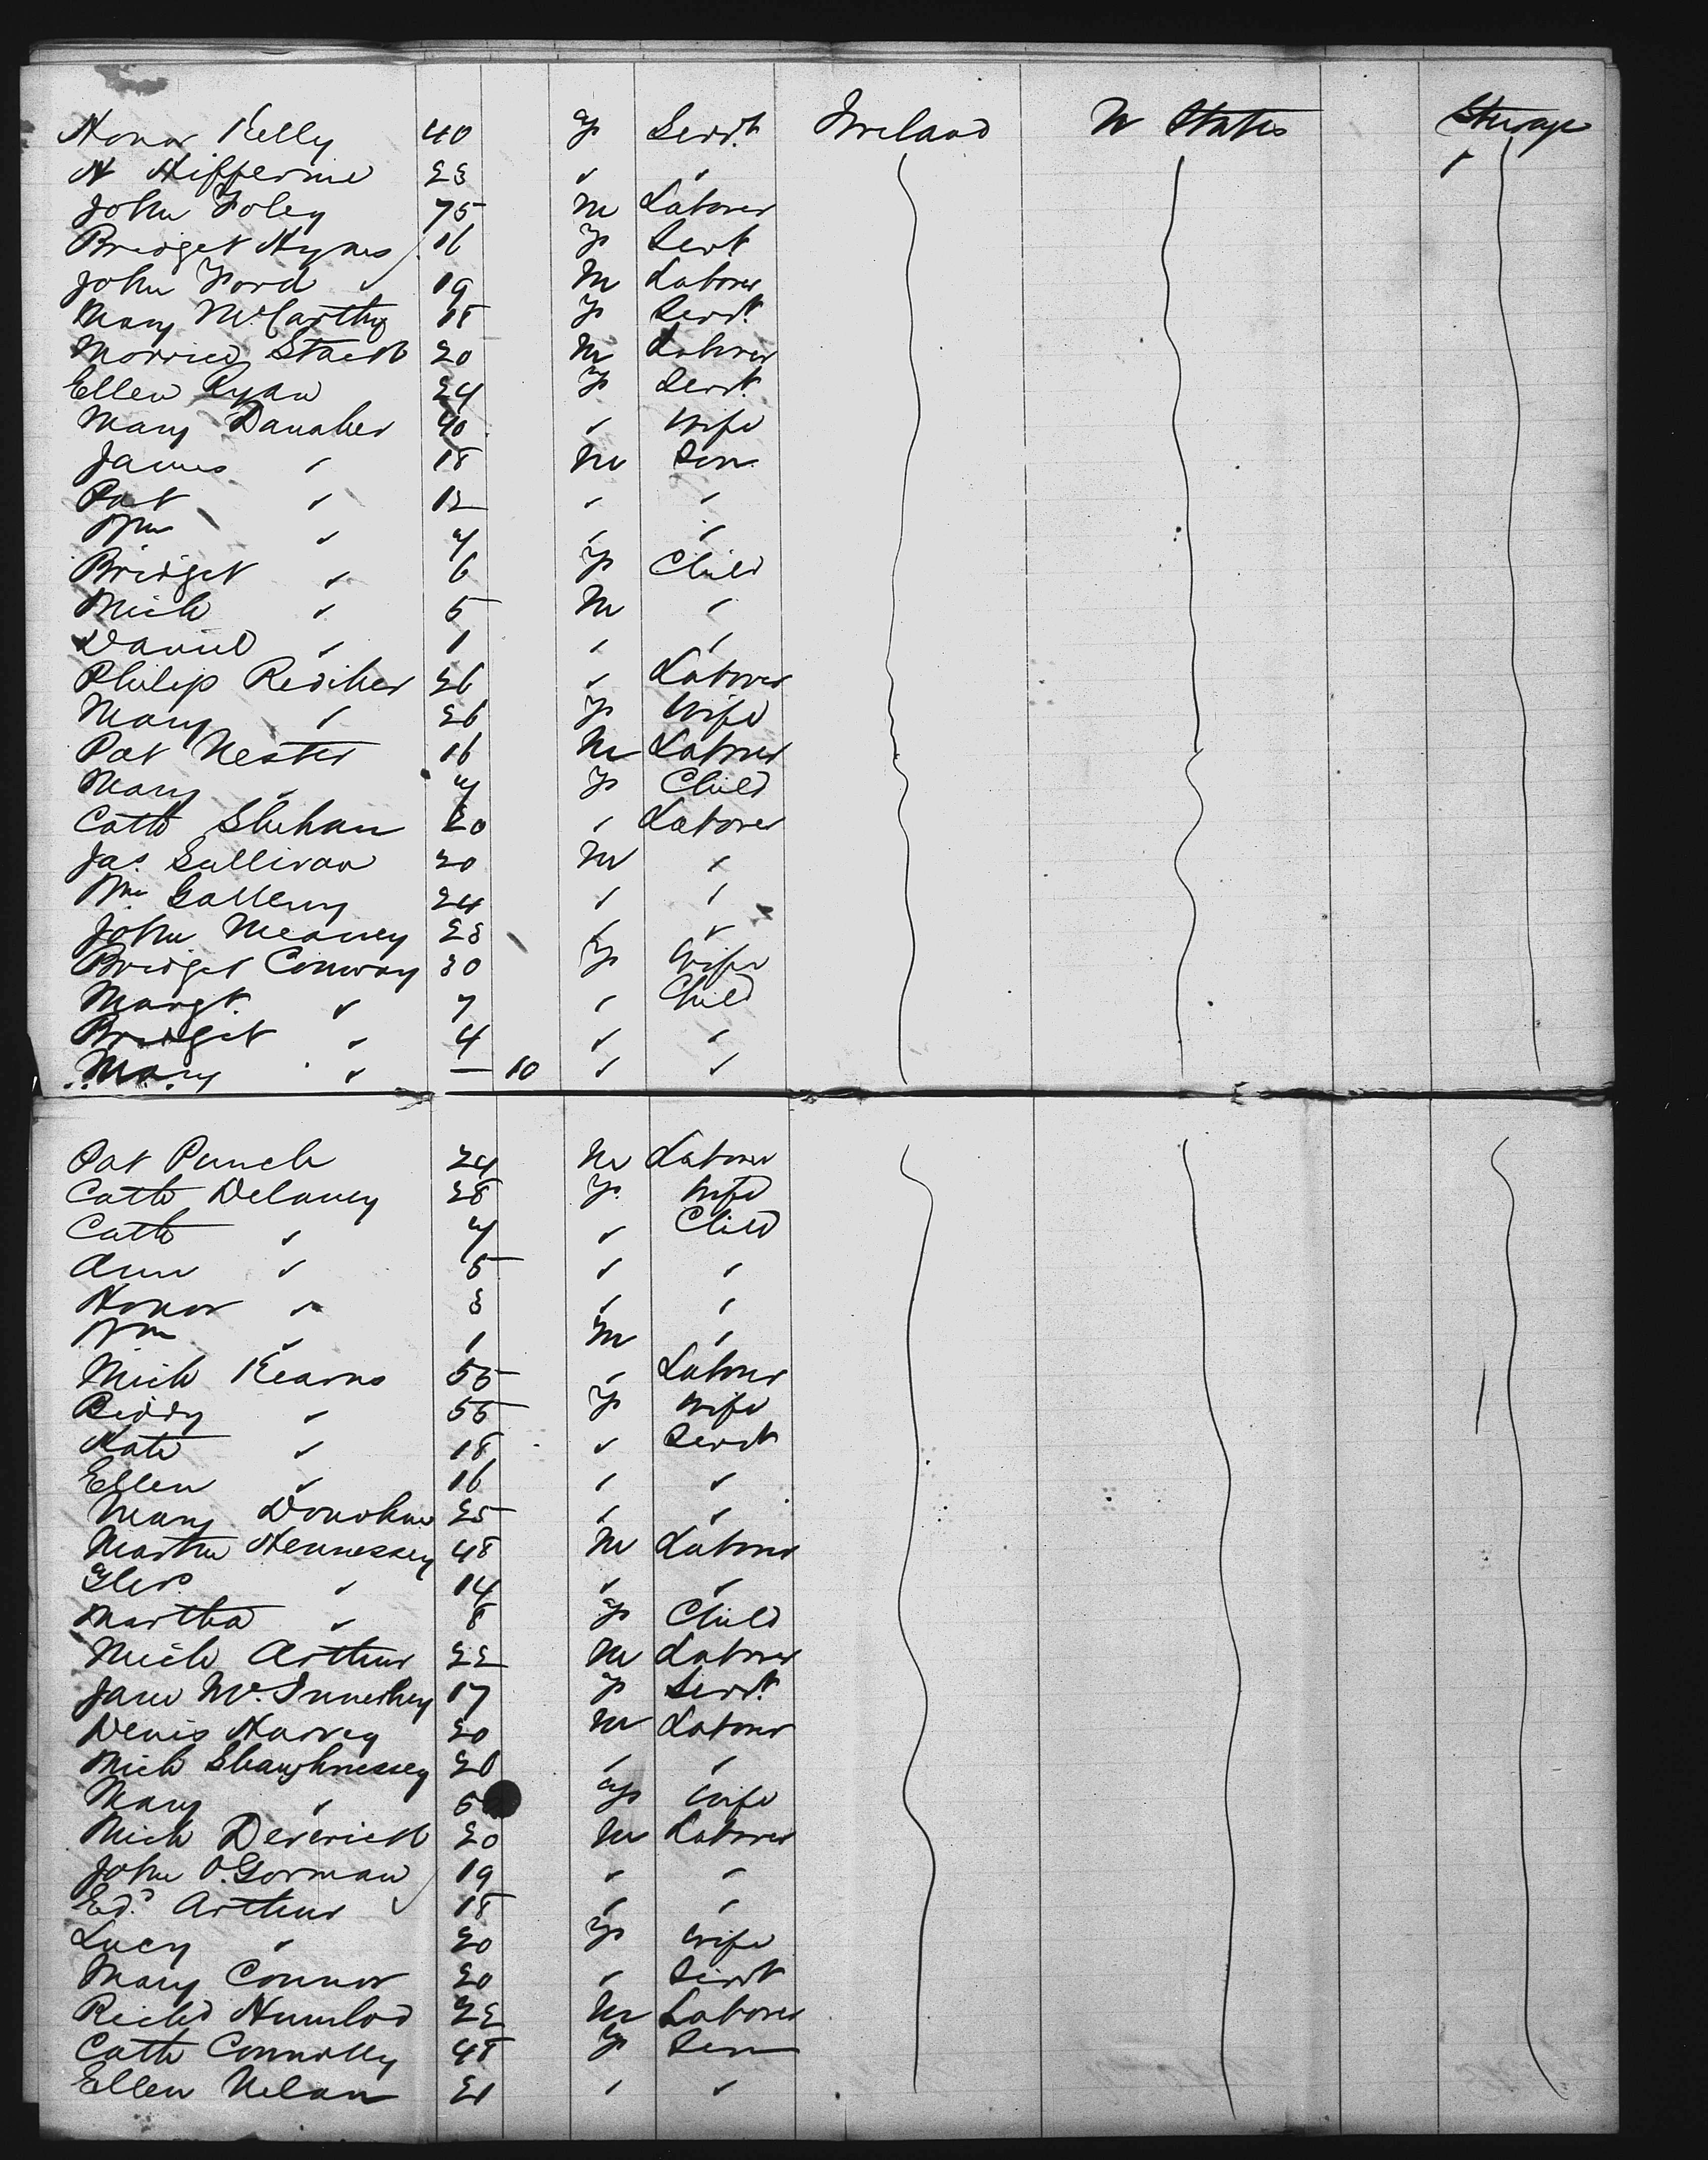 Honor Kelly 40 F Servt. Ireland U States Steerage
N Hifferine 23 " " "
John Foley 75 M Laborer
Bridget Hynes 16 F Servt
John Ford 19 M Laborer
Mary McCarthy 18 F Servt.
Morrice Stack 20 M Laborer
Ellen Ryan 24 F Servt.
Mary Danaher 40 " Wife
James " 18 M Son
Pat " 12 " "
Wm " 7 " "
Bridget " 6 F Child
Mich " 5 M "
Daniel " 1 " "
Philip Rediher 26 " Laborer
Mary " 26 F Wife
Pat Nester 16 M Laborer
Mary " 7 F Child
Cath Shehan 20 " Laborer
Jas. Sullivan 20 M "
Wm Gallery 24 " "
John Meaney 23 " "
Bridget Conway 30 F Wife
Margt. " 7 " Child
Bridget " 4 " "
Mary " — 10 " "
Pat Punch 24 M Laborer
Cath Delaney 28 F Wife
Cath " 7 " Child
Ann " 5 " "
Honor " 3 " "
Wm " 1 M "
Mich Kearns 55 " Laborer
Biddy " 55 F Wife
Kate " 18 " Servt
Ellen " 16 " "
Mary Donohue 25 " "
Martin Hennessey 48 M Laborer
" 14 " "
Martha " 8 F Child
Mich Arthur 22 M Laborer
Jane Mc. Innerhey 17 F Servt.
Denis Harvey 20 M Laborer
Mich Shaughnessey 26 " "
Mary " F Wife
Mich Deverick 20 M Laborer
John O'Gorman 19 " "
Ed. Arthur 18 " "
Lucy " 20 F Wife
Mary Connor 20 " Servt
Richd 22 M Laborer
Cath Connolly 48 F Serv
Ellen Nelan 21 " "